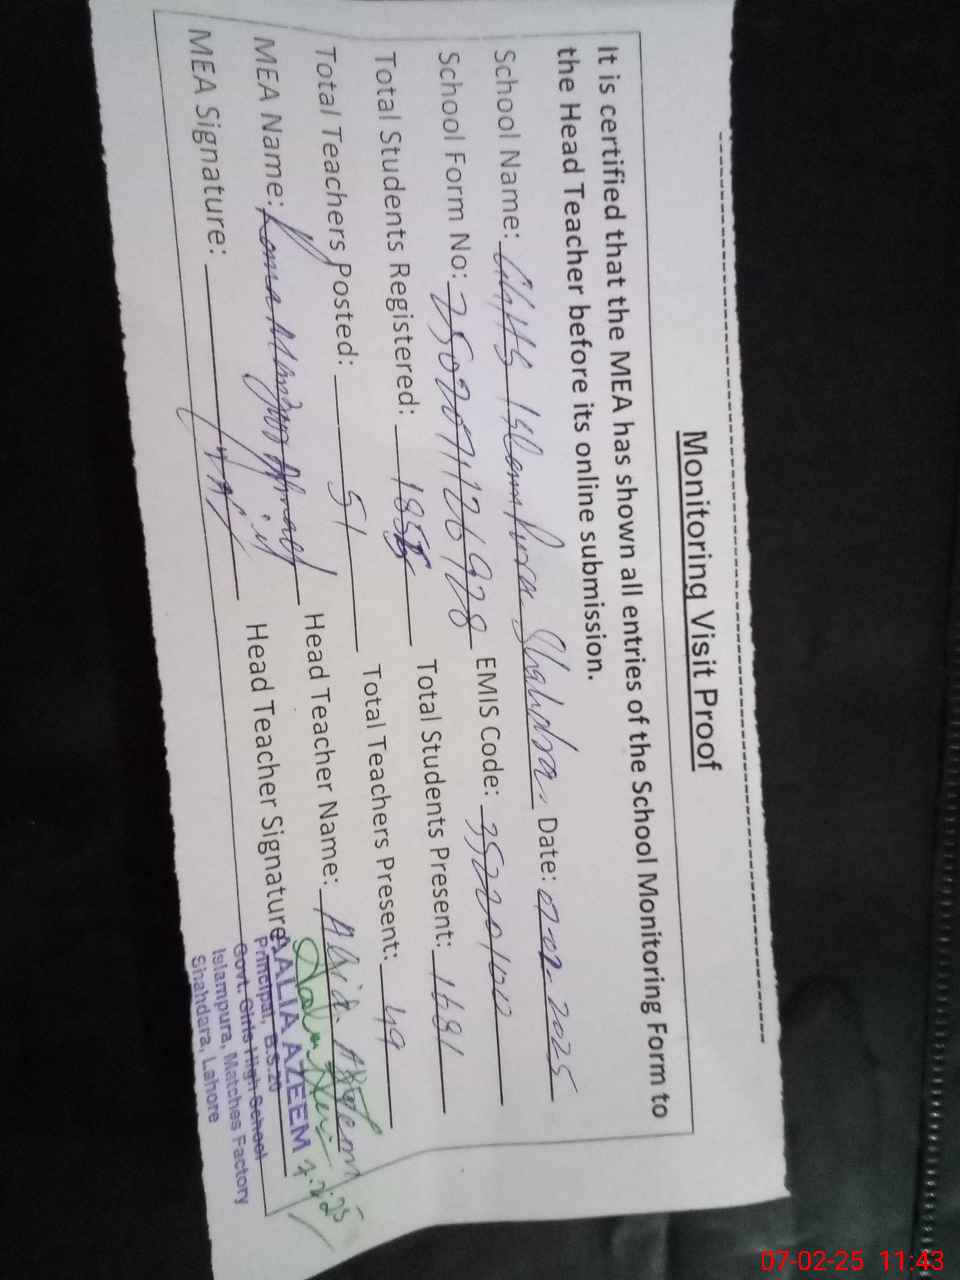 Monitoring Visit Proof
It is certified that the MEA has shown all entries of the School Monitoring Form to
the Head Teacher before its online submission.
School Name: GGHS Islampura Shahdra. Date: 07.02.2025
School Form No: EMIS Code:
Total Students Registered: Total Students Present: 1681
Total Teachers Posted: 51 Total Teachers Present: 49
MEA Name: Head Teacher Name:
MEA Signature: Head Teacher Signature:
7.2.25
AALIA AZEEM
Principal, B.S.20
Govt. Girls High School
Islampura, Matches Factory
Shahdara, Lahore
07-02-25 11:43